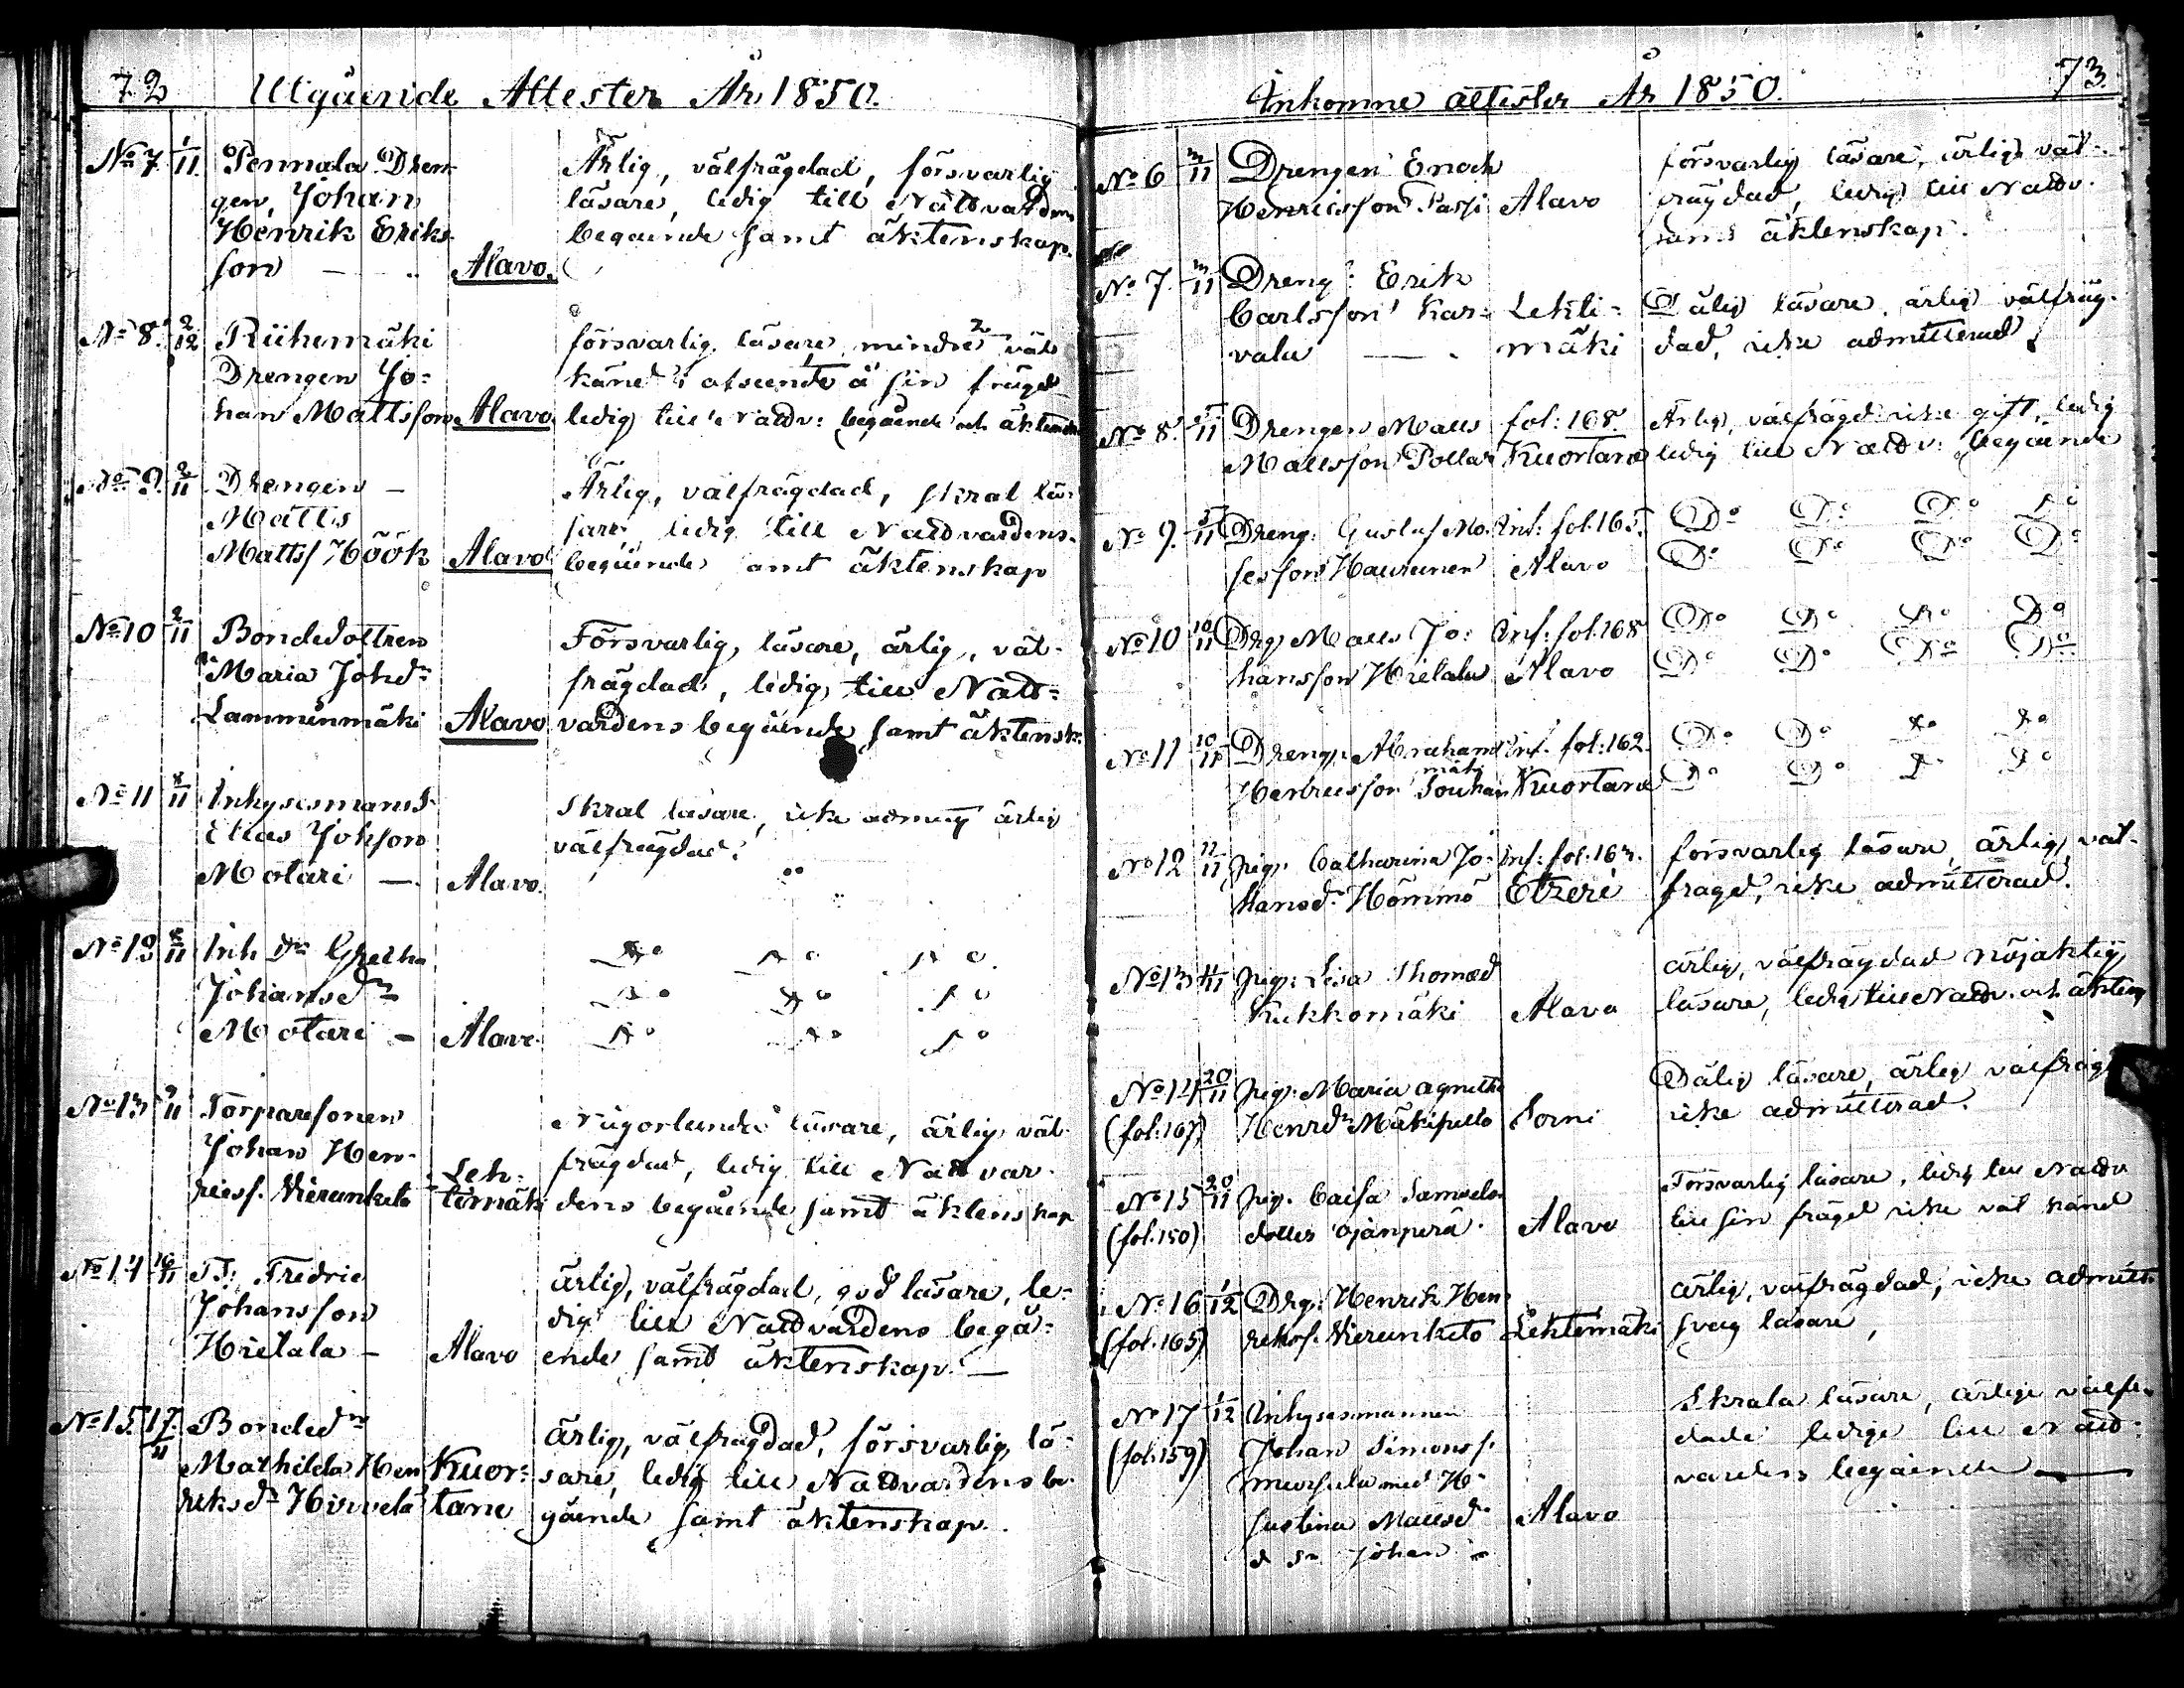 72 Utgående Attester År 1850.
No 7 1/11 Pennala Dren-
gen, Johan
Henrik Eriks-
son — .. Alavo.
Ärlig, välfrägdad, försvarlig
läsare, ledig till Nattvardens
begående samt äktenskap.
No 8. 2/12 Riihimäki
Drengen Jo=
han Mattsson Alavo
försvarlig läsare mindre väl
känd i afseende å sin frägd
ledig till Nattv: begående och äktensk
No 9. 2/11 Drengen —
Matts
Matts/ Höök Alavo
Ärlig, välfrägdad, skral lä-
sare, ledig till Nattvardens
begående samt äktenskap
No 10 2/11 Bondedottren
Maria Johd:r
Lamminmäki Alavo
Försvarlig läsare, ärlig, väl-
frägdad, ledig till Natt=
vardens begående samt äktensk:
No 11 8/11 Inhysesmans S.
Elias Johsson
Motari — Alavo.
Skral läsare, icke admitt ärlig
välfrägdad.
8/11 Inh Dr Gretha
Johansdr
Motari — Alavo.
Do Do Do
Do Do Do
Do Do Do
No 13 9/11 Torparesonen
Johan Hen-
ricss. Vierunketo Leh-
timäki
Någorlunda läsare, ärlig väl-
frägdad, ledig till Nattvar-
dens begående samt äktenskap
No 14 16/11 TS: Fredric
Johansson
Hietala — Alavo
ärlig, välfrägdad, god läsare, le-
dig till Nattvardens begå=
ende samt äktenskap. —
No 15. 17/11 Bondedr
Mathilda Hen
riksdr Hirvelä Kuor=
tane
ärlig, välfrägdad, försvarlig lä-
sare, ledig till Nattvardens be-
gående samt äktenskap.
Inkomne attester År 1850. 73.
No 6 3/11 Drengen Enoch
Henricsson Passi Alavo
försvarlig läsare, ärlig väl-
frägdad, ledig till Nattv.
samt äktenskap.
No 7. 3/11 Dreng: Erik
Carlsson Kar=
vala — . Lehti=
mäki
Dålig läsare, ärlig välfräg-
dad, icke admitterad
No 8. 5/11 Drengen Matts fol: 168.
Mattsson Pollari Kuortane
Ärlig, välfrägd icke gift, ledig
ledig till Nattv: begående
No 9. 5/11 Dreng: Gustaf Mo- Inf: fol. 165.
sesson Haurunen Alavo
Do Do Do Do
Do Do Do Do
No 10 10/11 Drg Matts Jo: Inf: fol. 168
hansson Hietala Alavo
Do Do Do Do
Do Do Do Do
No 11 10/11 Dreng: Abraham Inf. fol: 162.
Henricsson Kuortane
Do Do Do Do
Do Do Do Do
No 12 11/11 Pig. Catharina Jo: Inf: fol. 163.
hansd:r Hömmö Etzeri
försvarlig läsare, ärlig, väl-
frägd, icke admitterad.
No 13 11/11 Pig: Lisa Thomasd
Kukkomäki Alavo
ärlig, välfrägdad nöjaktig
läsare, ledig till Nattv. och äktensk
No 14 20/11 Pig: Maria Agneta
(fol: 167) Henrdr Mäkipelto
Dålig läsare, ärlig välfrägd
icke admitterad.
No 15 20/11 Pig. Caisa Samuels
(fol. 150) dotter Ojanperä. Alavo
Försvarlig läsare, ledig till Nattv
till sin frägd icke väl känd
No 16 1/12 Drg: Henrik Hen-
(fol. 165) rikss. Vierunketo Lehtimäki
ärlig, välfrägdad, icke admitt.
svag läsare,
No 17 1/12 Inhysesmannen
(fol. 159) Johan Simonss.
med H:
Justina Mattsdr Alavo
Johan
Skrala läsare, ärlige välfr-
dade ledige till Natt-
vardens begående —